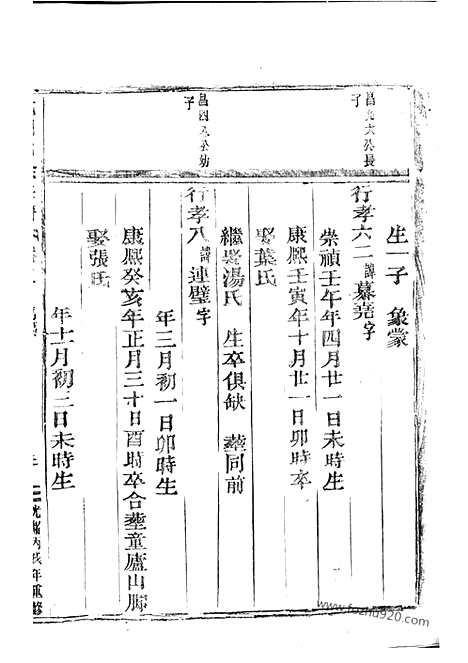 生一子 象蒙
昌 大公長子
行孝六二諱慕堯字
崇禎壬午年四月廿一日未時生
康熙壬寅年十月廿一日卯時卒
娶葉氏
繼娶湯氏 生卒俱缺 塟同前
昌四 公幼子
行孝八 諱連璧字
年三月初一日卯時生
康熙癸亥年正月三十日酉時卒合塟童廬山脚
娶張氏
年十一月初二日未時生
年重修
www.fozhu920.com